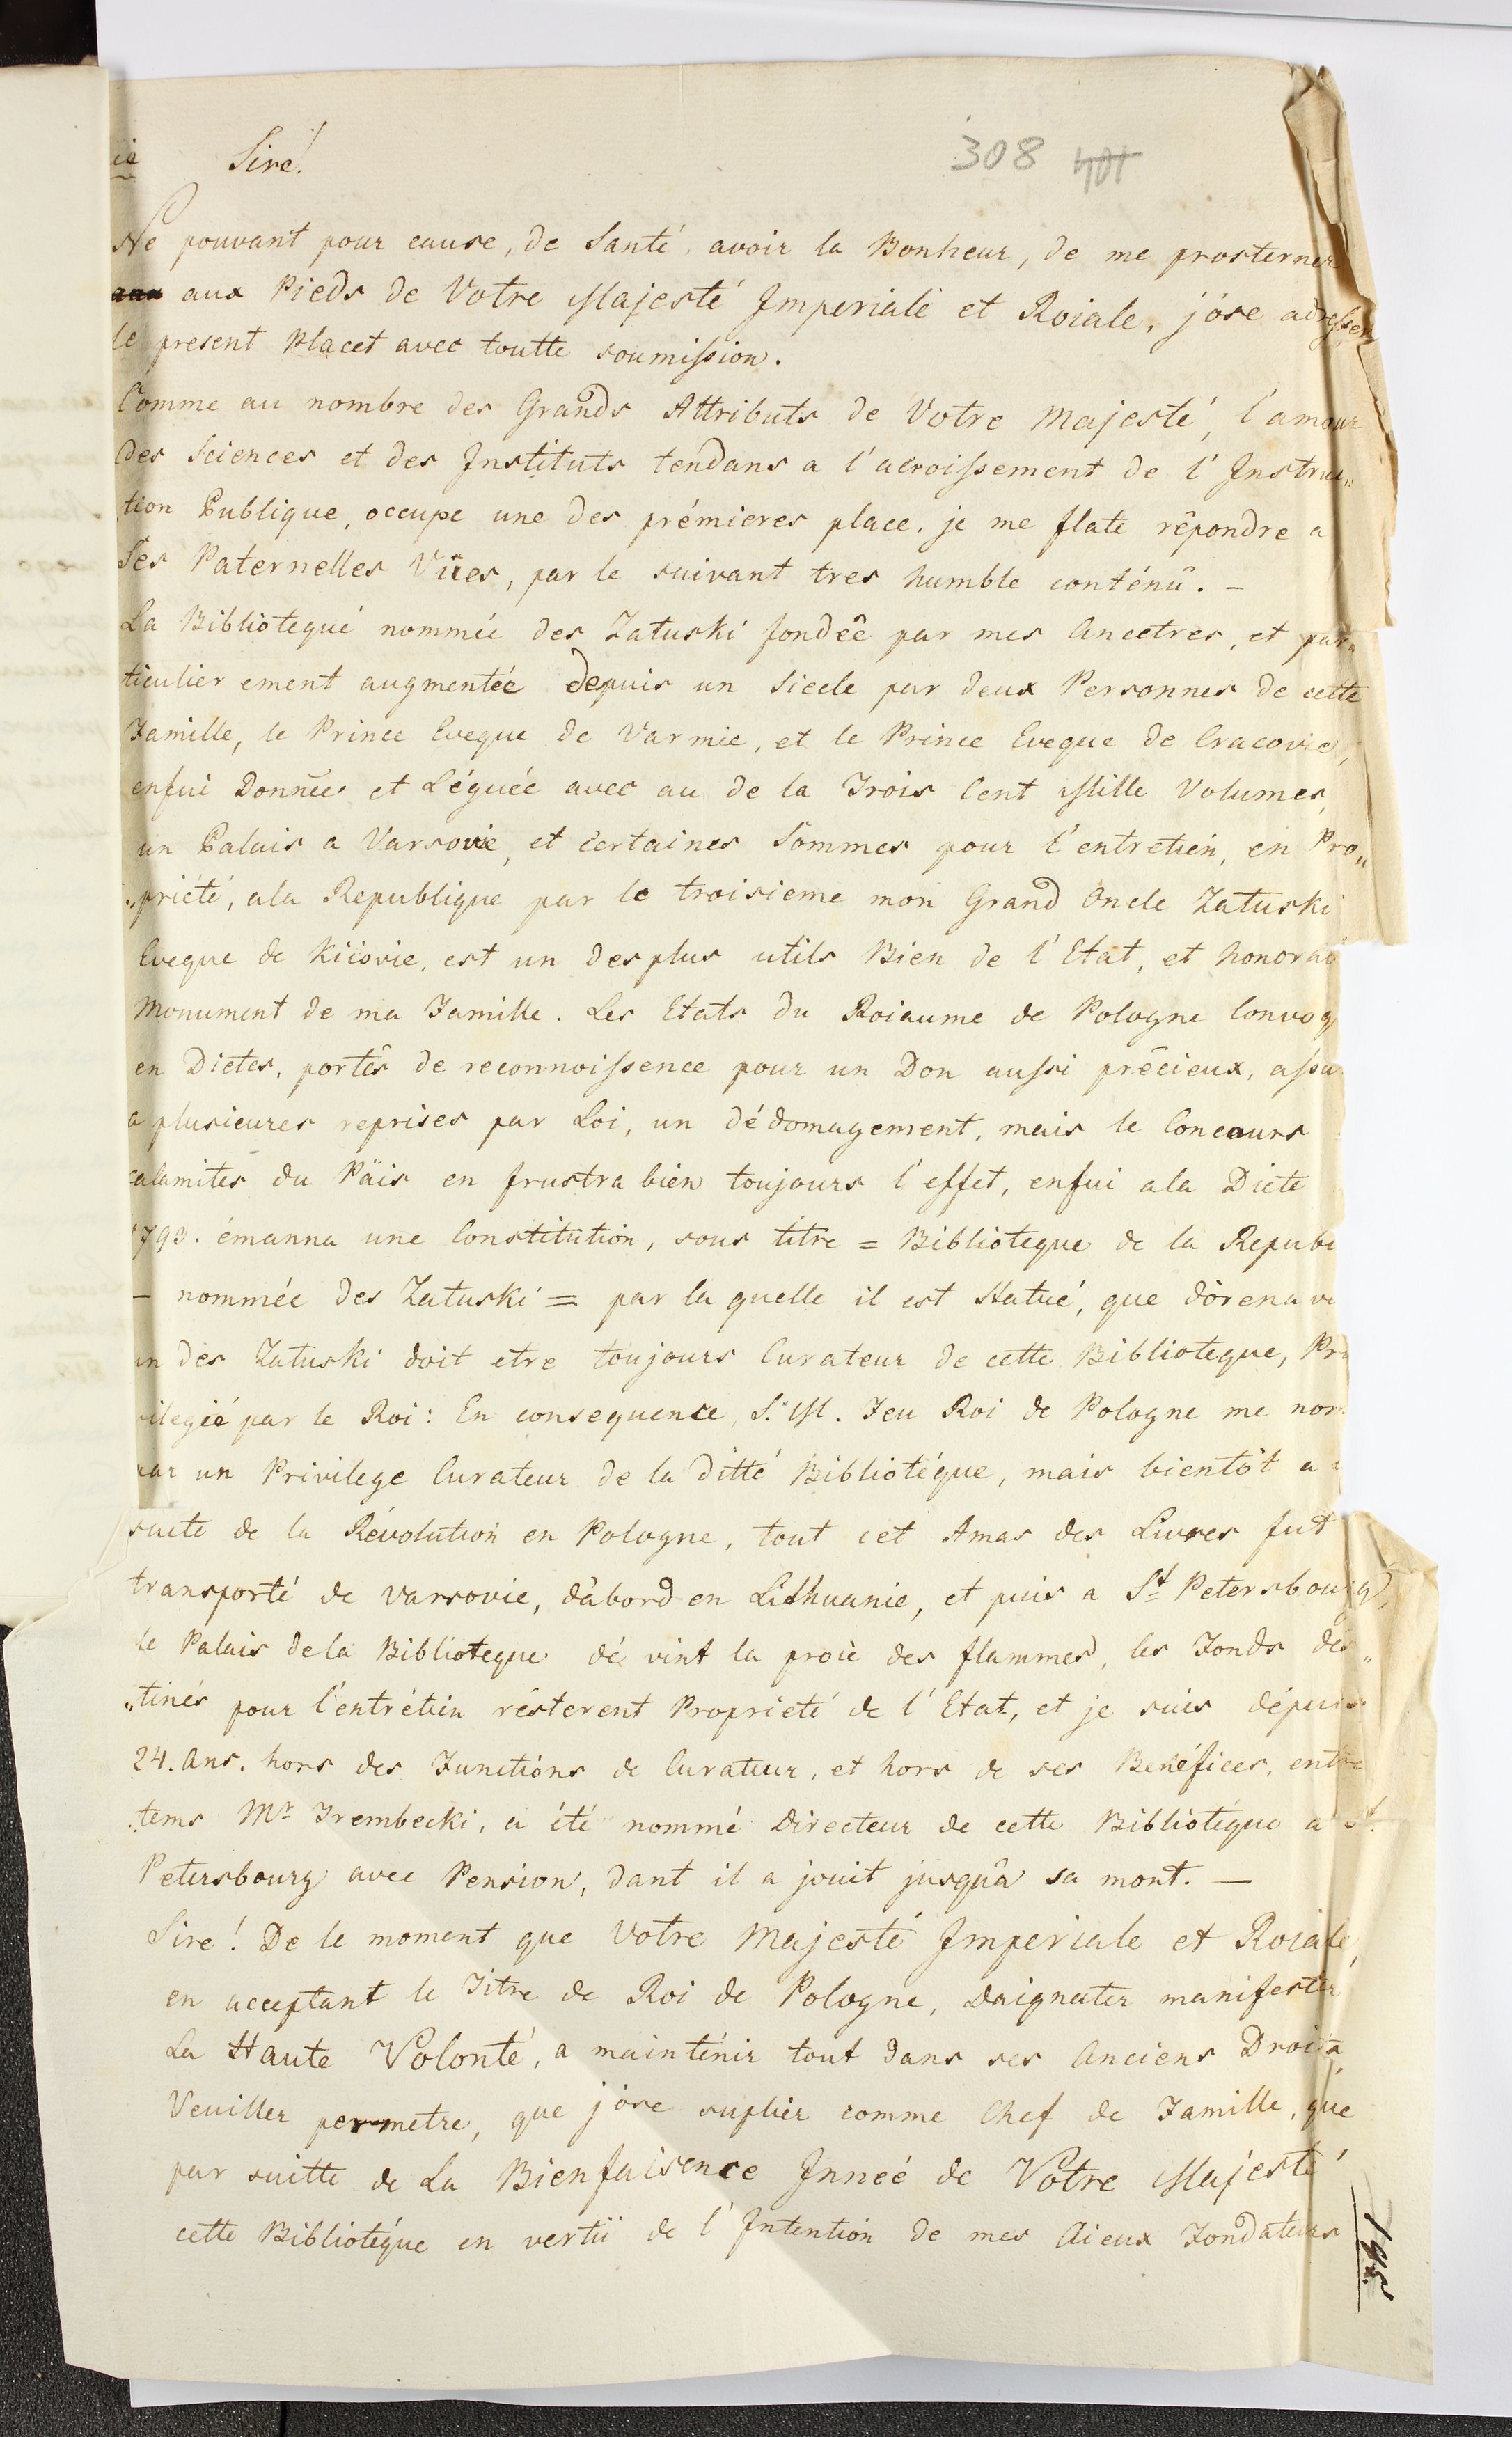 Sire!
308 401
Ne pouvant pour cause, de Santé, avoir la Bonheur, de me prosterner
aux Pieds de Votre Majesté Imperiale et Roiale, j'óse adresser
le present Placet avec toutte soumission.
Comme au nombre des Grands Attributs de Votre Majesté, l'amour
des Sciences et des Instituts tendans a l'acroissement de l'Instruc„
tion Publique, occupe une des prémieres place. je me flate répondre a
Ses Paternelles Vües, par le suivant tres humble conténu. –
La Bibliotequé nommée des Załuski fondée par mes Ancetres, et par„
ticulier ement augmentée depuis un Siecle par deux Personnes de cette
Famille, le Prince Eveque de Varmie, et le Prince Eveque de Cracovie,
enfui Donnée et Léguée avec au de la Trois Cent Mille Volumes,
un Palais a Varsovie, et certaines Sommes pour l'entretien, en Pro„
„priété, ala Republique par le troisieme mon Grand Oncle Załuski
Eveque de Kiiovie, est un des plus utils Bien de l'Etat, et honora
Monument de ma Famille. Les Etats du Roiaume de Pologne Convoq
en Dietes, portés de reconnoissence pour un Don aussi précieux, assu
a plusieures reprises par Loi, un dédomagement, mais le Concours
calamites du Päis en frustra bien toujours l'effet, enfui ala Diete
1793. émanna une Constitution, sous titre = Biblioteque de la Republ
– nommée des Załuski = par la quelle il est Statué, que dórenav
un des Załuski doit etre toujours Curateur de cette Biblioteque, Pri
vilegié par le Roi: En consequence, S. M. Feu Roi de Pologne me nom
par un Privilege Curateur de la ditté Bibliotéque, mais bientôt a
suite de la Révolution en Pologne, tout cet Amas des Livres fut
transporté de Varsovie, d'abord en Lithuanie, et puis a St Petersbourg,
le Palais de la Biblioteque dé vint la proie des flammes, les Fonds des„
„tinés pour l'entrétien résterent Proprieté de l'Etat, et je suis dépuis
24. Ans, hors des Functions de Curateur, et hors de ses Benéfices, entre
tems Mr Trembecki, a été nommé Directeur de cette Bibliotéque a St
Petersbourg avec Pension, dant il a jouit jusqu'a sa mont. —
Sire! De le moment que Votre Majesté Imperiale et Roiale,
en acceptant le Titre de Roi de Pologne, Daignater manifester
La Haute Volonté, a mainténir tout dans ses Anciens Droits
Veuiller permetre, que j'ose suplier comme Chef de Famille, que
par suitte de La Bienfaisence Inneé de Votre Majesté
cette Bibliotéque en vertü de l'Intention de mes Aieux Fondateurs
195.